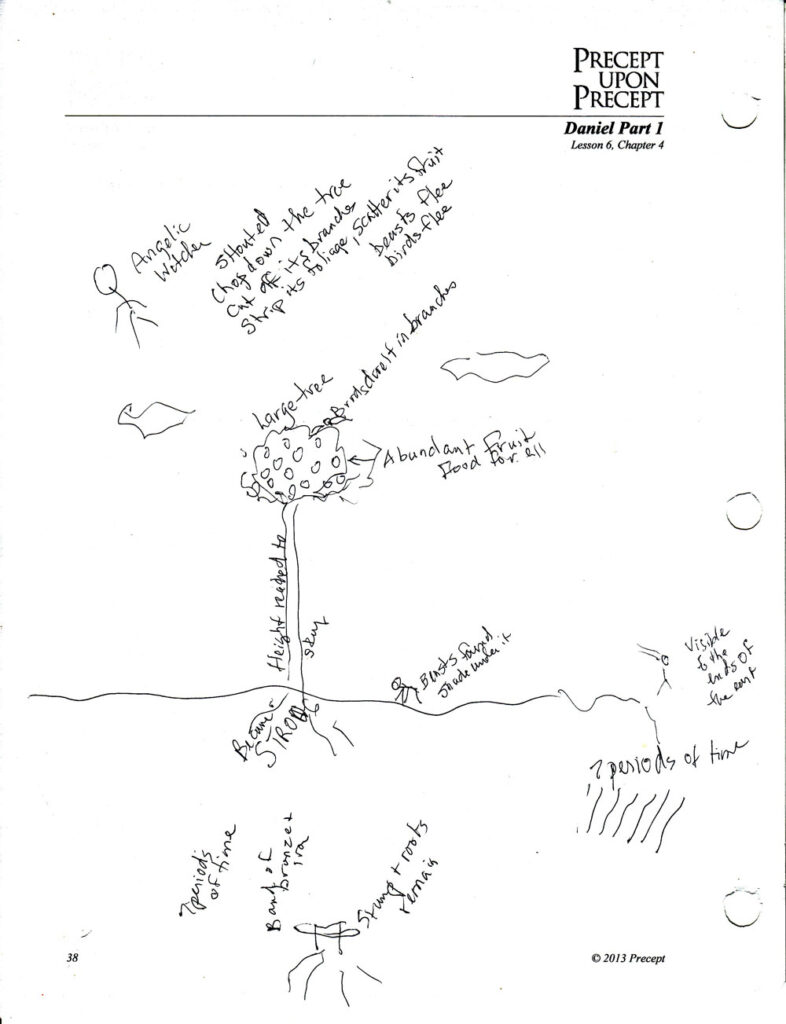 PRECEPT
UPON
PRECEPT
Daniel Part 1
Lesson 6, Chapter 4
Angelic
Witcher
Shouted
Chop down the tree
Cut off its branches
Strip its foliage, scatter its fruit
beasts flee
birds flee
Large tree
Birds dwelt in branches
Abundant Fruit
Food for all
Height reached to
sky
Beasts found
shade under it
Visible
to the
ends of
the eart
Became
STRONG
7 periods of time
7 periods
of time
Band of
bronze +
iron
Stump + roots
remain
38
© 2013 Precept